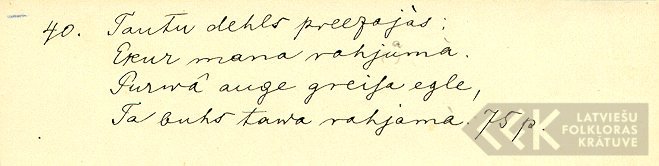 40. Tautu dehls preezajàs:
Ekur mana rahjuma.
Purwâ auge greisa egle,
Ta buhs tawa rahjama. 75 p.
LATVIEŠU
FOLKLORAS
KRĀTUVE